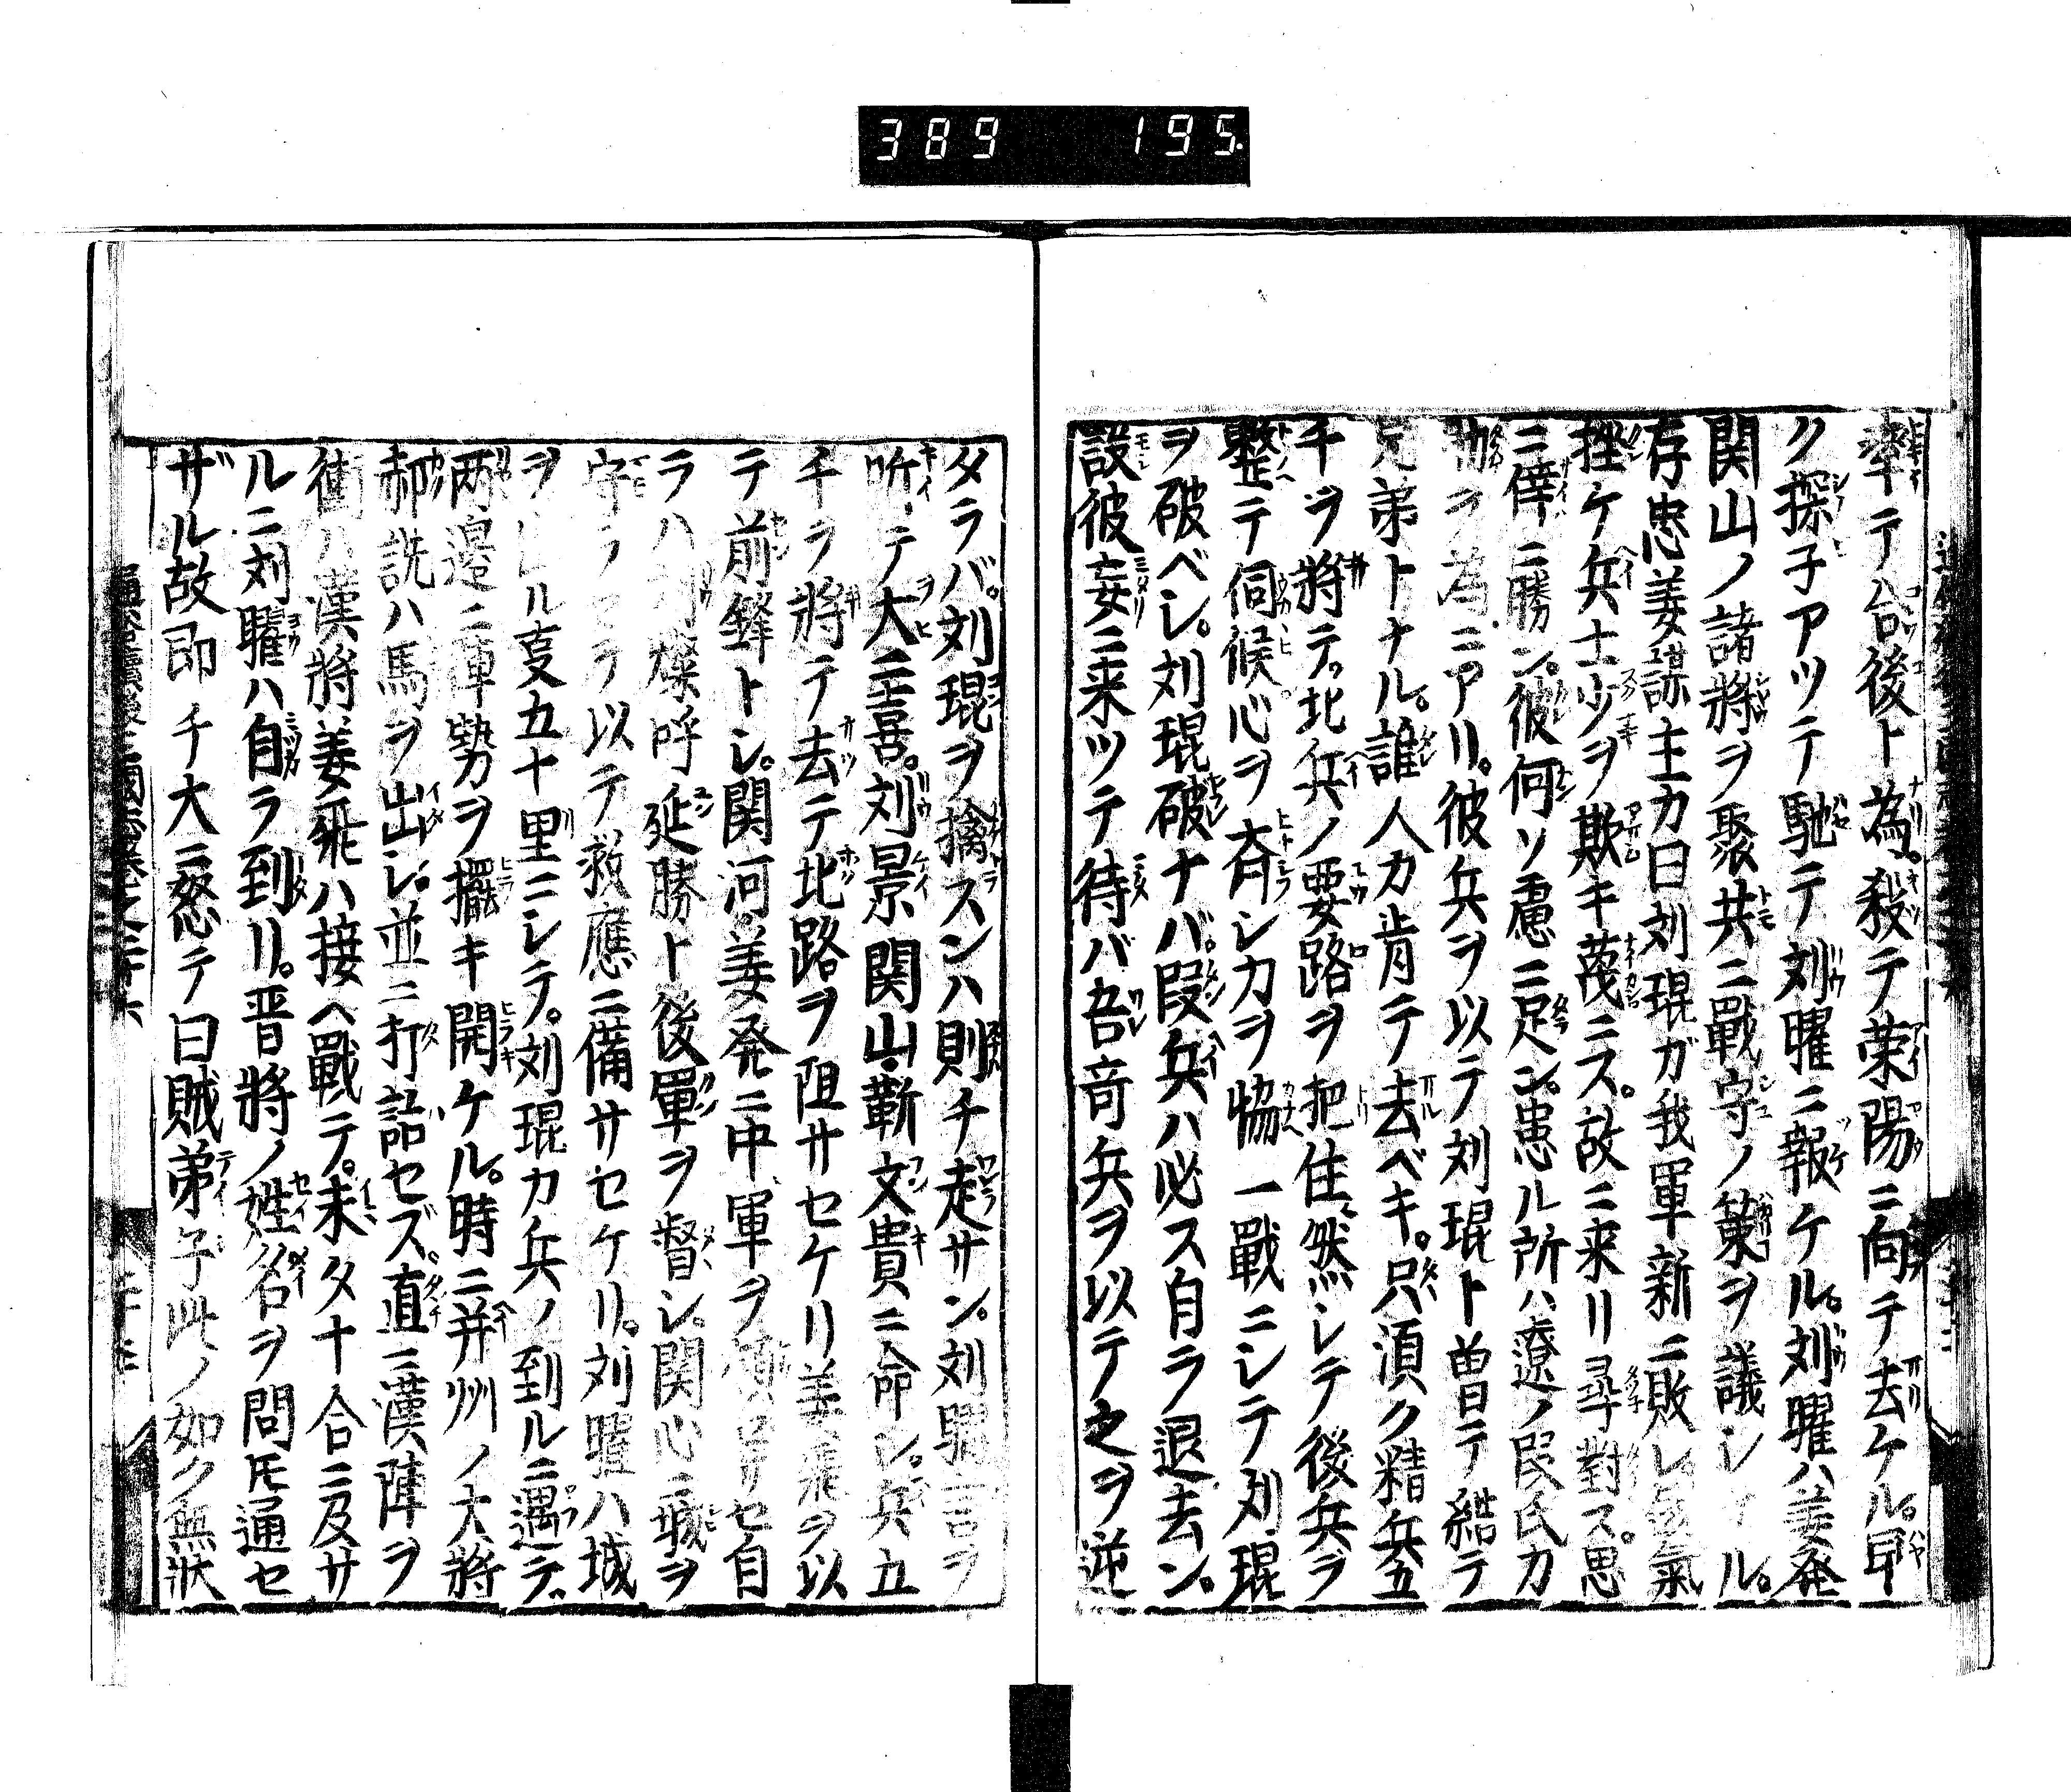 389 195
率テ合後ト為。殺テ荣陽ニ向テ去ケル。早
ク探子アツテ馳テ刘曜ニ報ケル。刘曜ハ姜発
関山ノ諸將ヲ聚共ニ戰守ノ策ヲ議シケル。
存忠姜謀主カ曰刘琨ガ我軍新ニ敗レ氣
挫ケ兵士少ヲ欺キ蔑ニス。故ニ来リ尋對ス。思
ニ倖ニ勝ン。彼何ソ慮ニ足ン。患ル所ハ遼ノ段氏カ
助ヲ為ニアリ。彼兵ヲ以テ刘琨ト曽テ結テ
兄弟トナル。誰人カ肯テ去ベキ。只須ク精兵五
千ヲ將テ。北兵ノ要路ヲ把住、然シテ後兵ヲ
整テ伺候心ヲ斉シ力ヲ恊一戰ニシテ刘琨
ヲ破ベシ。刘琨破ナバ。段兵ハ必ス自ラ退去ン。
設彼妄ニ来ツテ待バ吾奇兵ヲ以テ之ヲ逆
タラバ。刘琨ヲ擒スンハ則チ走サン。刘聰言ヲ
听テ大ニ喜。刘景関山靳文貴ニ命シ。兵五
千ヲ將テ去テ北路ヲ阻サセケリ姜飛ヲ以
テ前鋒トシ。関河。姜発ニ中軍ヲ領サセ自
ラハ刘燦呼延勝ト後軍ヲ督シ。関心ニ城ヲ
守ラ以テ救應ニ備サセケリ。刘曜ハ城
ヲル叓五十里ニシテ。刘琨カ兵ノ到ルニ遇テ。
两邊ニ陣勢ヲ擺キ開ケル。時ニ并州ノ大將
郝詵ハ馬ヲ出シ。並ニ打話セズ。直ニ漢陣ヲ
衝ハ漢將姜飛ハ接ヘ戰テ。未タ十合ニ及サ
ルニ刘曜ハ自ラ到リ。晋將ノ姓名ヲ問モ通セ
ザル故即チ大ニ怒テ曰賊弟子此ノ如ク無狀